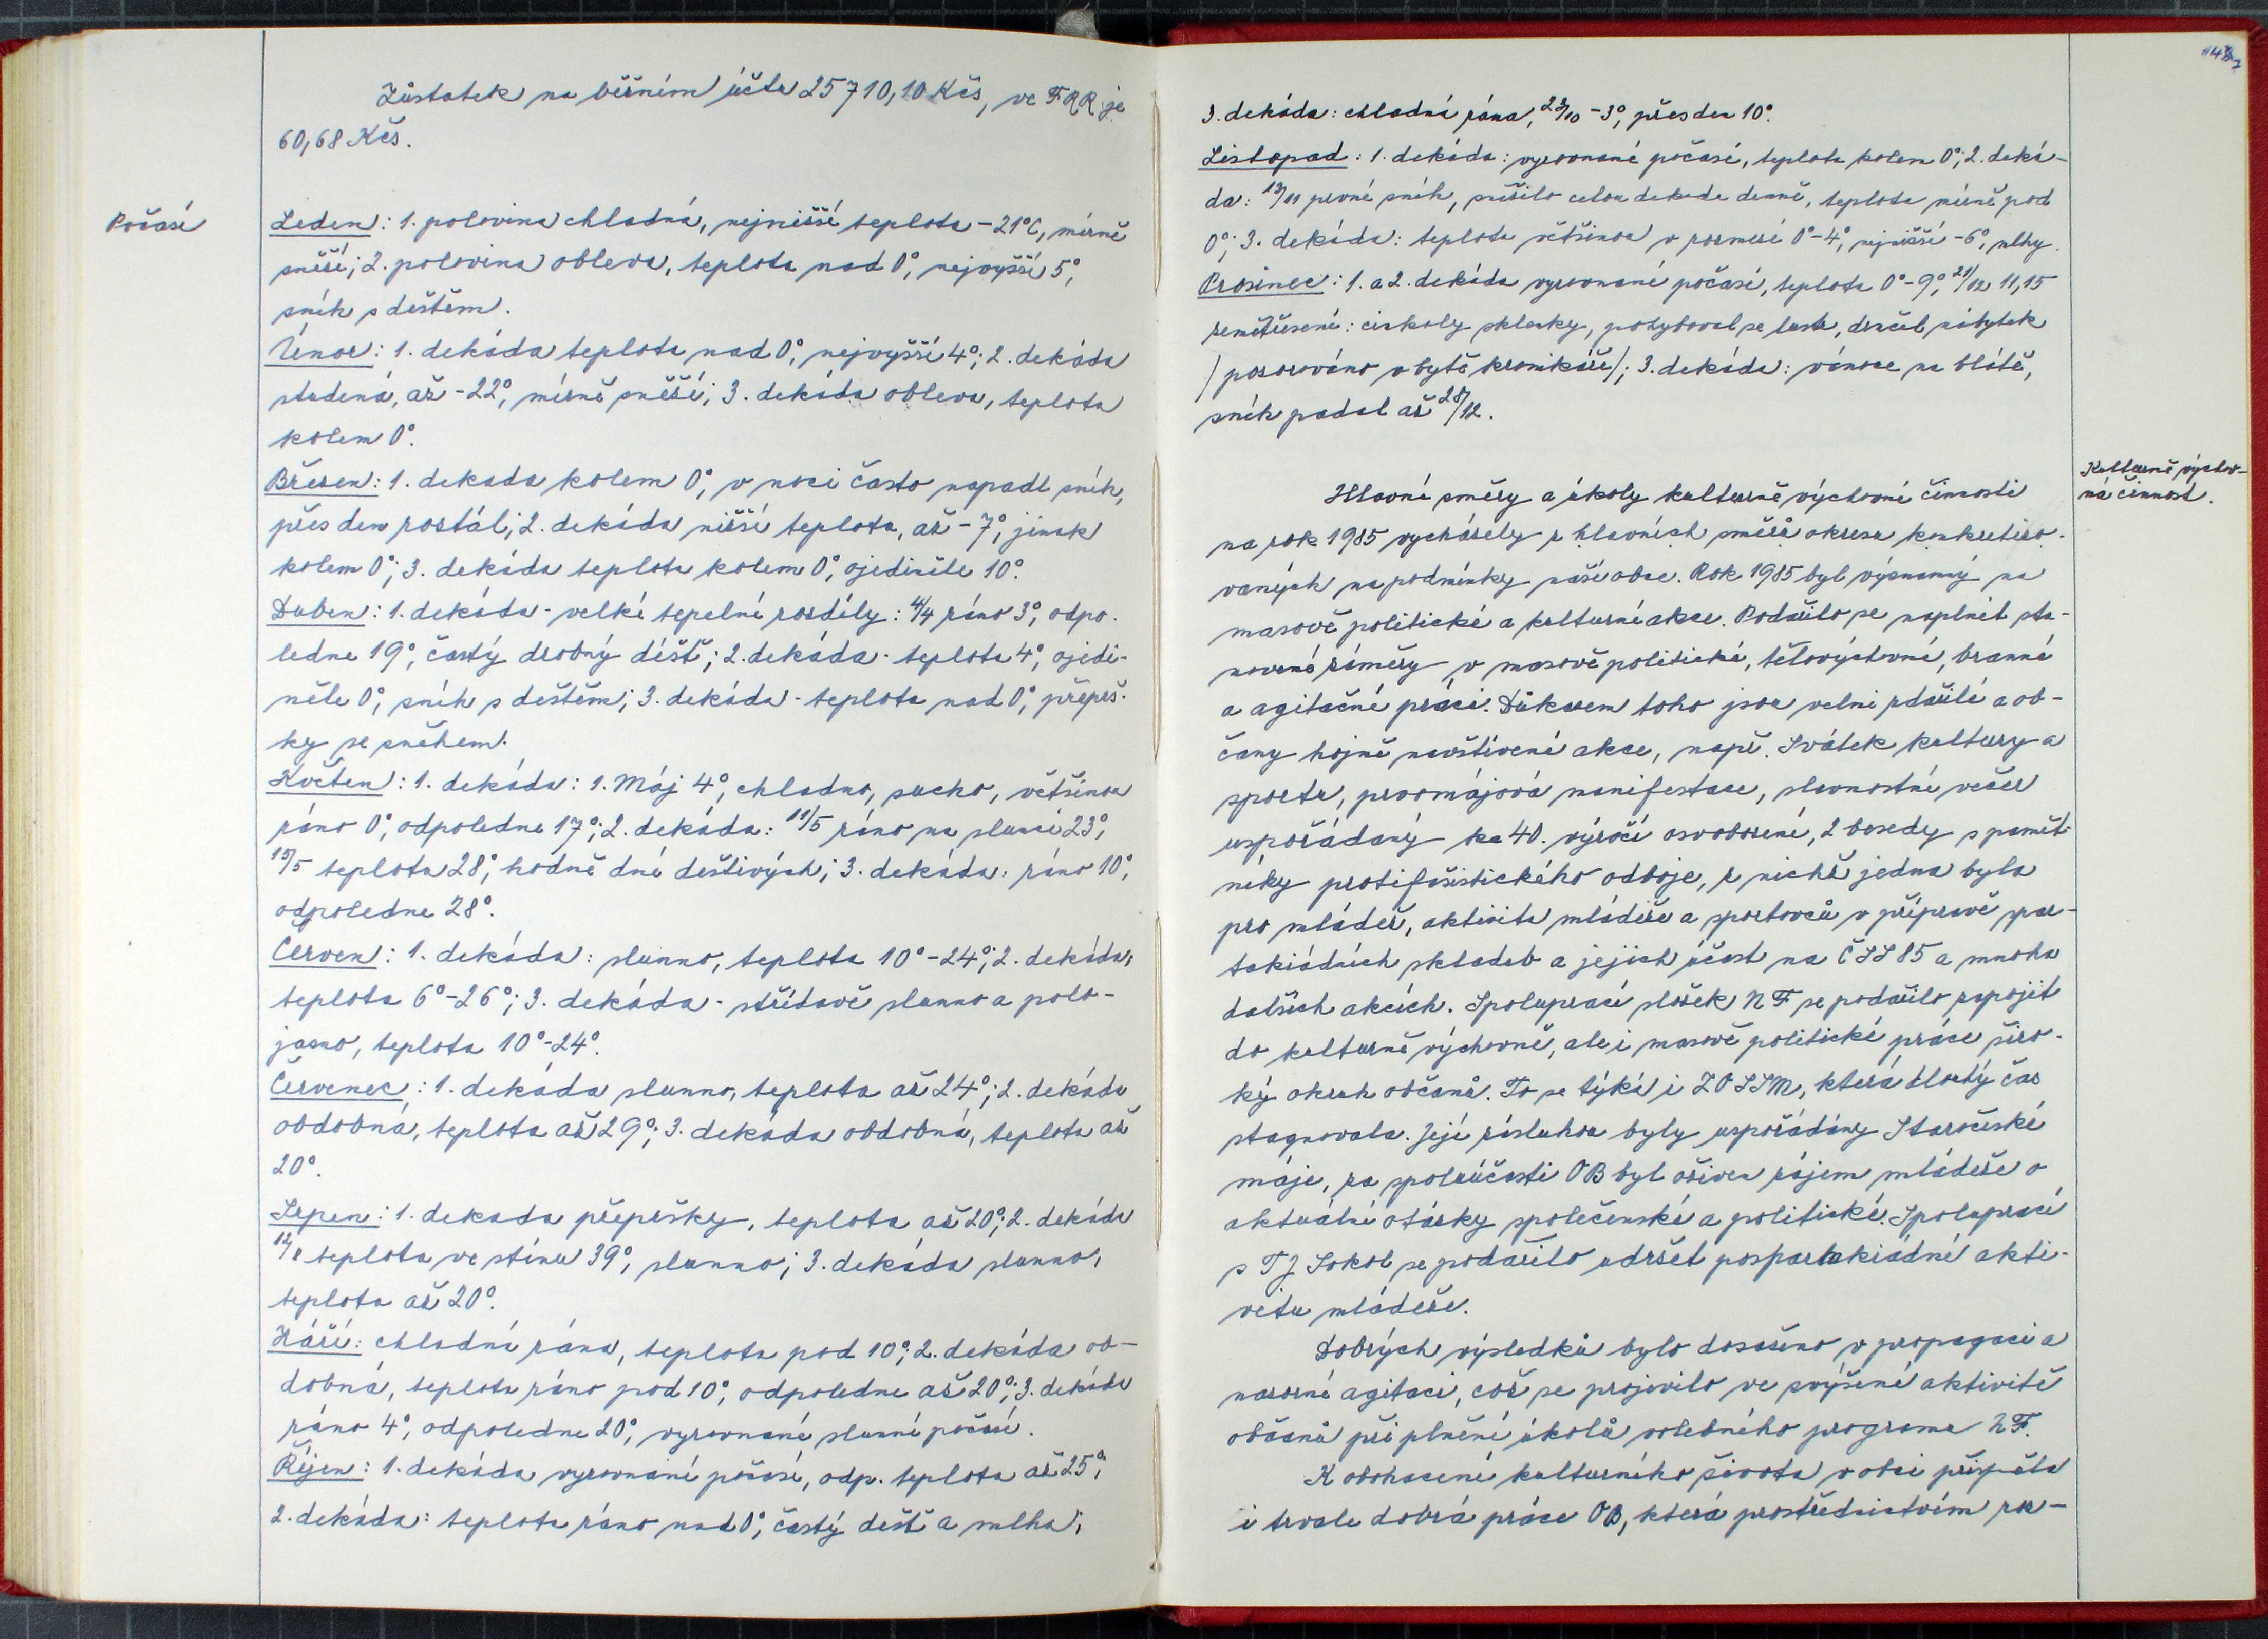 Zůstatek na běžném účtu 25710,10 Kčs, ve FRR je
60,68 Kčs.
Počasí
Leden: 1. polovina chladná, nejnižší teplota -21°C, mírně
sněží; 2. polovina obleva, teplota nad 0°, nejvyšší 5°,
sníh s deštěm.
Únor: 1. dekáda teplota nad 0°, nejvyšší 4°; 2. dekáda
studená, až -22°, mírně sněží; 3. dekáda obleva, teplota
kolem 0°.
Březen: 1. dekada kolem 0°, v noci často napadl sníh,
přes den roztál; 2. dekáda nižší teplota, až -7°, jinak
kolem 0°; 3. dekáda teplota kolem 0°, ojediněle 10°.
Duben: 1. dekáda - velké tepelné rozdíly: 4/4 ráno 3°, odpo-
ledne 19°, častý drobný déšť; 2. dekáda - teplota 4°, ojedi-
něle 0°, sníh s deštěm; 3. dekáda - teplota nad 0°, přeprš-
ky se sněhem.
Květen: 1. dekáda: 1. Máj 4°, chladno, sucho, většinou
ráno 0°, odpoledne 17°; 2. dekáda: 11/5 ráno na slunci 23°,
15/5 teplota 28°, hodně dní deštivých; 3. dekáda: ráno 10°,
odpoledne 28°.
Červen: 1. dekáda: slunno, teplota 10°-24°; 2. dekáda,
teplota 6°-26°; 3. dekáda - střídavě slunno a polo-
jasno, teplota 10°-24°.
Červenec: 1. dekáda slunno, teplota až 24°; 2. dekáda
obdobná, teplota až 29°; 3. dekáda obdobná, teplota až
20°.
Srpen: 1. dekada přepršky, teplota až 20°; 2. dekáda
14/8 teplota ve stínu 39°, slunno; 3. dekáda slunno,
teplota až 20°.
Září: chladná rána, teplota pod 10°; 2. dekáda ob-
dobná, teplota ráno pod 10°, odpoledne až 20°; 3. dekáda
ráno 4°, odpoledne 20°, vyrovnané slunné počasí.
Říjen: 1. dekáda vyrovnané počasí, odp. teplota až 25°;
2. dekáda: teplota ráno nad 0°, častý déšť a mlha;
3. dekáda: chladná rána, 23/10 -3°, přes den 10°.
Listopad: 1. dekáda: vyrovnané počasí, teplota kolem 0°; 2. deká-
da: 13/11 první sníh, sněžilo celou dekádu denně, teplota mírně pod
0°; 3. dekáda: teplota většinou v rozmezí 0°-4°, nejnižší -6°, mlhy.
Prosinec: 1. a 2. dekáda vyrovnané počasí, teplota 0°-9°, 21/12 11,15
zemětřesení: cinkaly sklenky, pohyboval se lustr, drnčel nábytek
/pozorováno v bytě kronikáře/; 3. dekáda: vánoce na blátě,
sníh padal až 28/12.
Kulturně výchov-
ná činnost.
Hlavní směry a úkoly kulturně výchovné činnosti
na rok 1985 vycházely z hlavních směrů okresu konkretizo-
vaných na podmínky naší obce. Rok 1985 byl významný na
masově politické a kulturní akce. Podařilo se naplnit sta-
novené záměry v masově politické, tělovýchovné, branné
a agitační práci. Důkazem toho jsou velmi zdařilé a ob-
čany hojně navštívené akce, např. Svátek kultury a
sportu, prvomájová manifestace, slavnostní večer
uspořádaný ke 40. výročí osvobození, 2 besedy s pamět-
níky protifašistického odboje, z nichž jedna byla
pro mládež, aktivita mládeže a sportovců v přípravě spar-
takiádních skladeb a jejich účast na ČSS 85 a mnoha
dalších akcích. Spoluprací složek NF se podařilo zapojit
do kulturně výchovné, ale i masově politické práce širo-
ký okruh občanů. To se týká i ZO SSM, která dlouhý čas
stagnovala. Její zásluhou byly uspořádány Staročeské
máje, za spoluúčasti OB byl oživen zájem mládeže o
aktuální otázky společenské a politické. Spoluprací
s TJ Sokol se podařilo udržet pospartakiádní akti-
vitu mládeže.
Dobrých výsledků bylo dosaženo v propagaci a
názorné agitaci, což se projevilo ve zvýšené aktivitě
občanů při plnění úkolů volebního programu NF.
K obohacení kulturního života v obci přispěla
i trvale dobrá práce OB, která prostřednictvím roz-